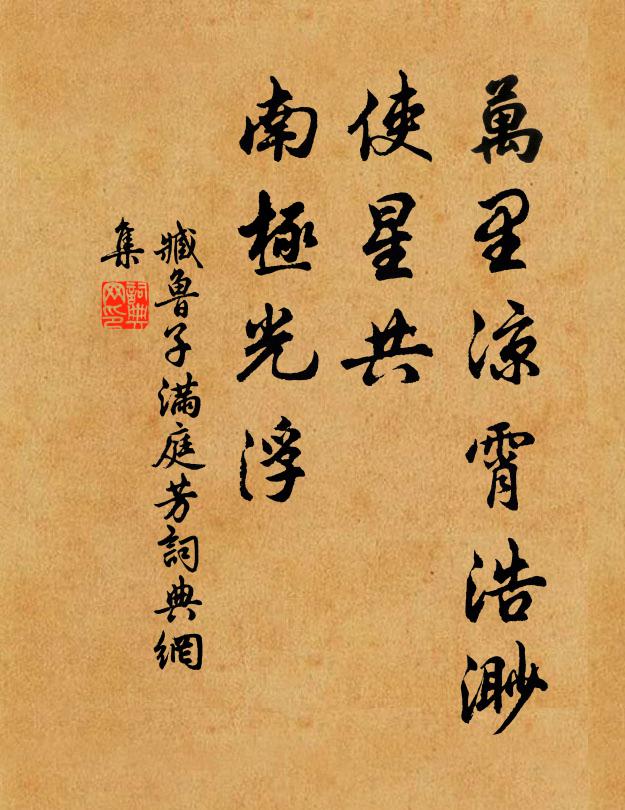 萬里涼霄浩渺
使星共
南極光浮
臧魯子滿庭芳詞典網
集
詞典網印